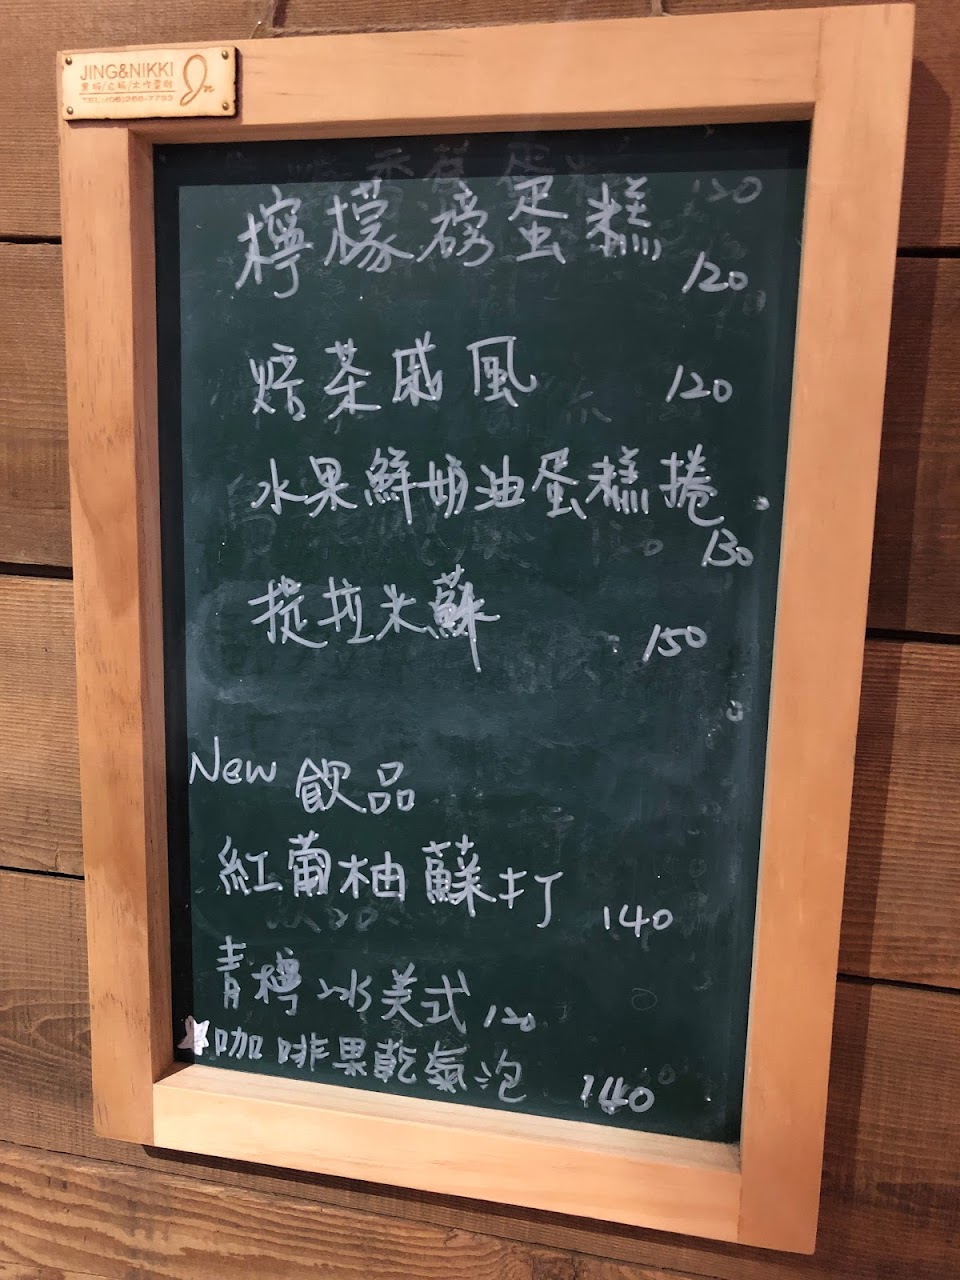 JING&NIKKI
TEL:(06)266-7793
檸檬磅蛋糕
120
焙茶戚風 120
水果鮮奶油蛋糕捲
130
提拉米蘇 150
New 飲品
紅葡柚蘇打 140
青檸冰美式 120
咖啡果乾氣泡 140